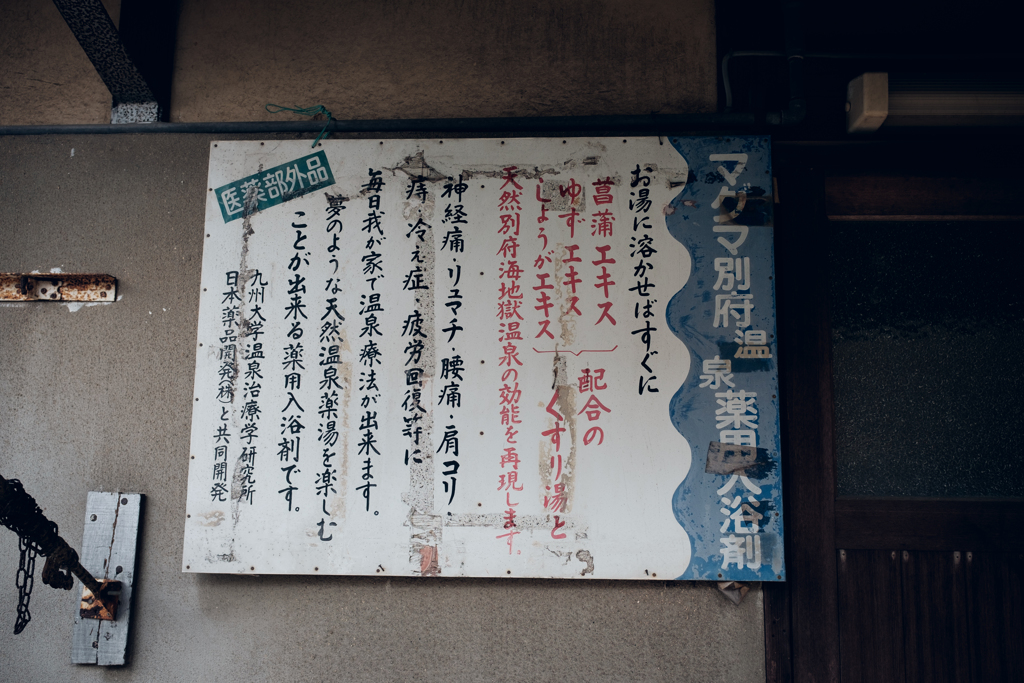 マグマ別府温泉薬用入浴剤
お湯に溶かせばすぐに
菖蒲エキス
ゆずエキス
しょうがエキス
配合の
くすり湯と
天然別府海地獄温泉の効能を再現します。
神経痛・リュマチ・腰痛・肩コリ・
痔・冷え症 疲労回復等に
毎日我が家で温泉療法が出来ます。
夢のような天然温泉薬湯を楽しむ
ことが出来る薬用入浴剤です。
九州大学温泉治療学研究所
日本薬品開発(株)と共同開発
医薬部外品